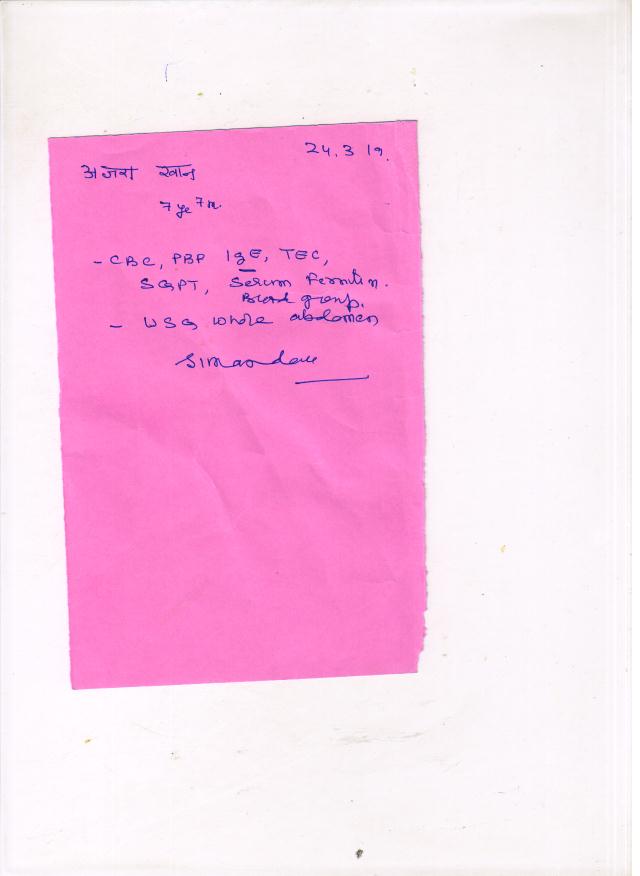 24.3 19.
अजरा खान
7 ye 7 m.
- CBC, PBP IgE, TEC,
SGPT, Serum Ferritin.
Blood group.
- USG whole abdomen